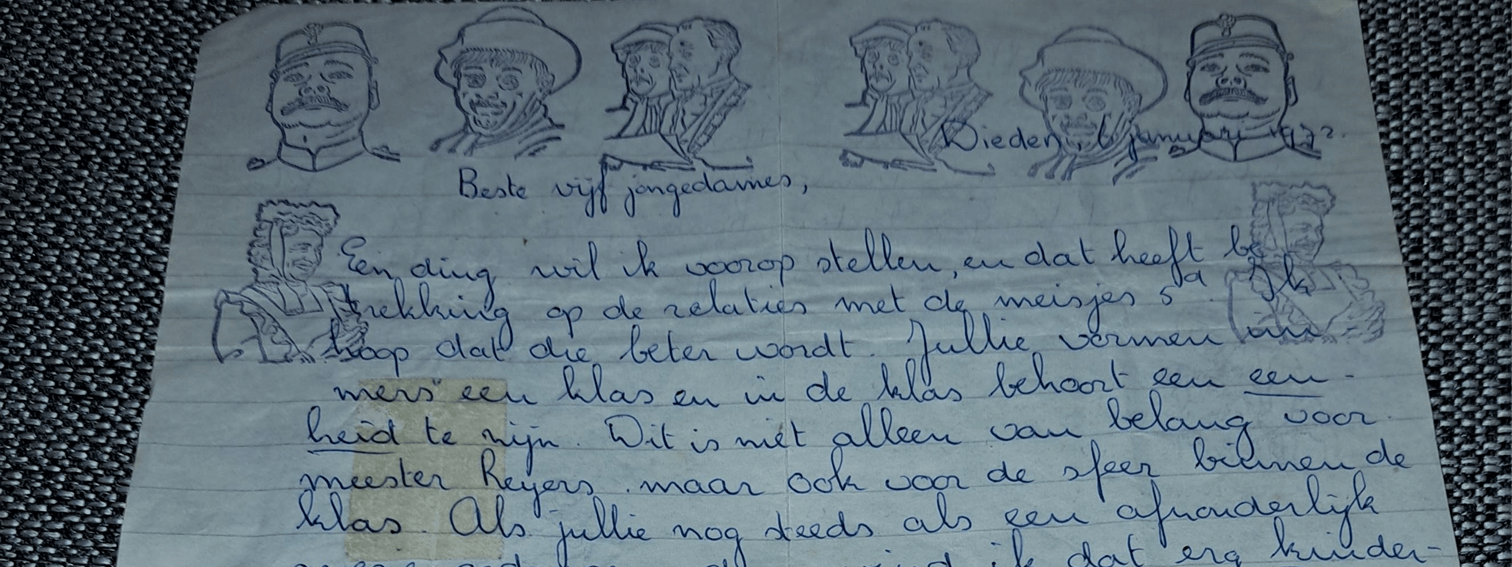 Dieden, 6 januari 1972.
Beste vijf jongedames,
Een ding wil ik voorop stellen, en dat heeft be
trekking op de relaties met de meisjes 5a. Ik
hoop dat die beter wordt. Jullie vormen im
mers een klas en in de klas behoort een een-
heid te zijn. Dit is niet alleen van belang voor
meester Reyers, maar ook voor de sfeer binnen de
klas. Als jullie nog steeds als een afzonderlijk
ik dat erg kinder-